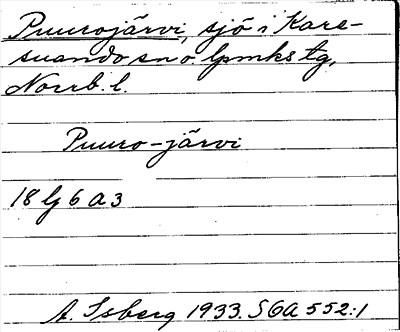 Puurojärvi, sjö i Kare-
suando sn o. lpmks tg,
Norrb. l.
Puuro-järvi
18 G 6 A 3
A. Isberg 1933. SGA 552:1